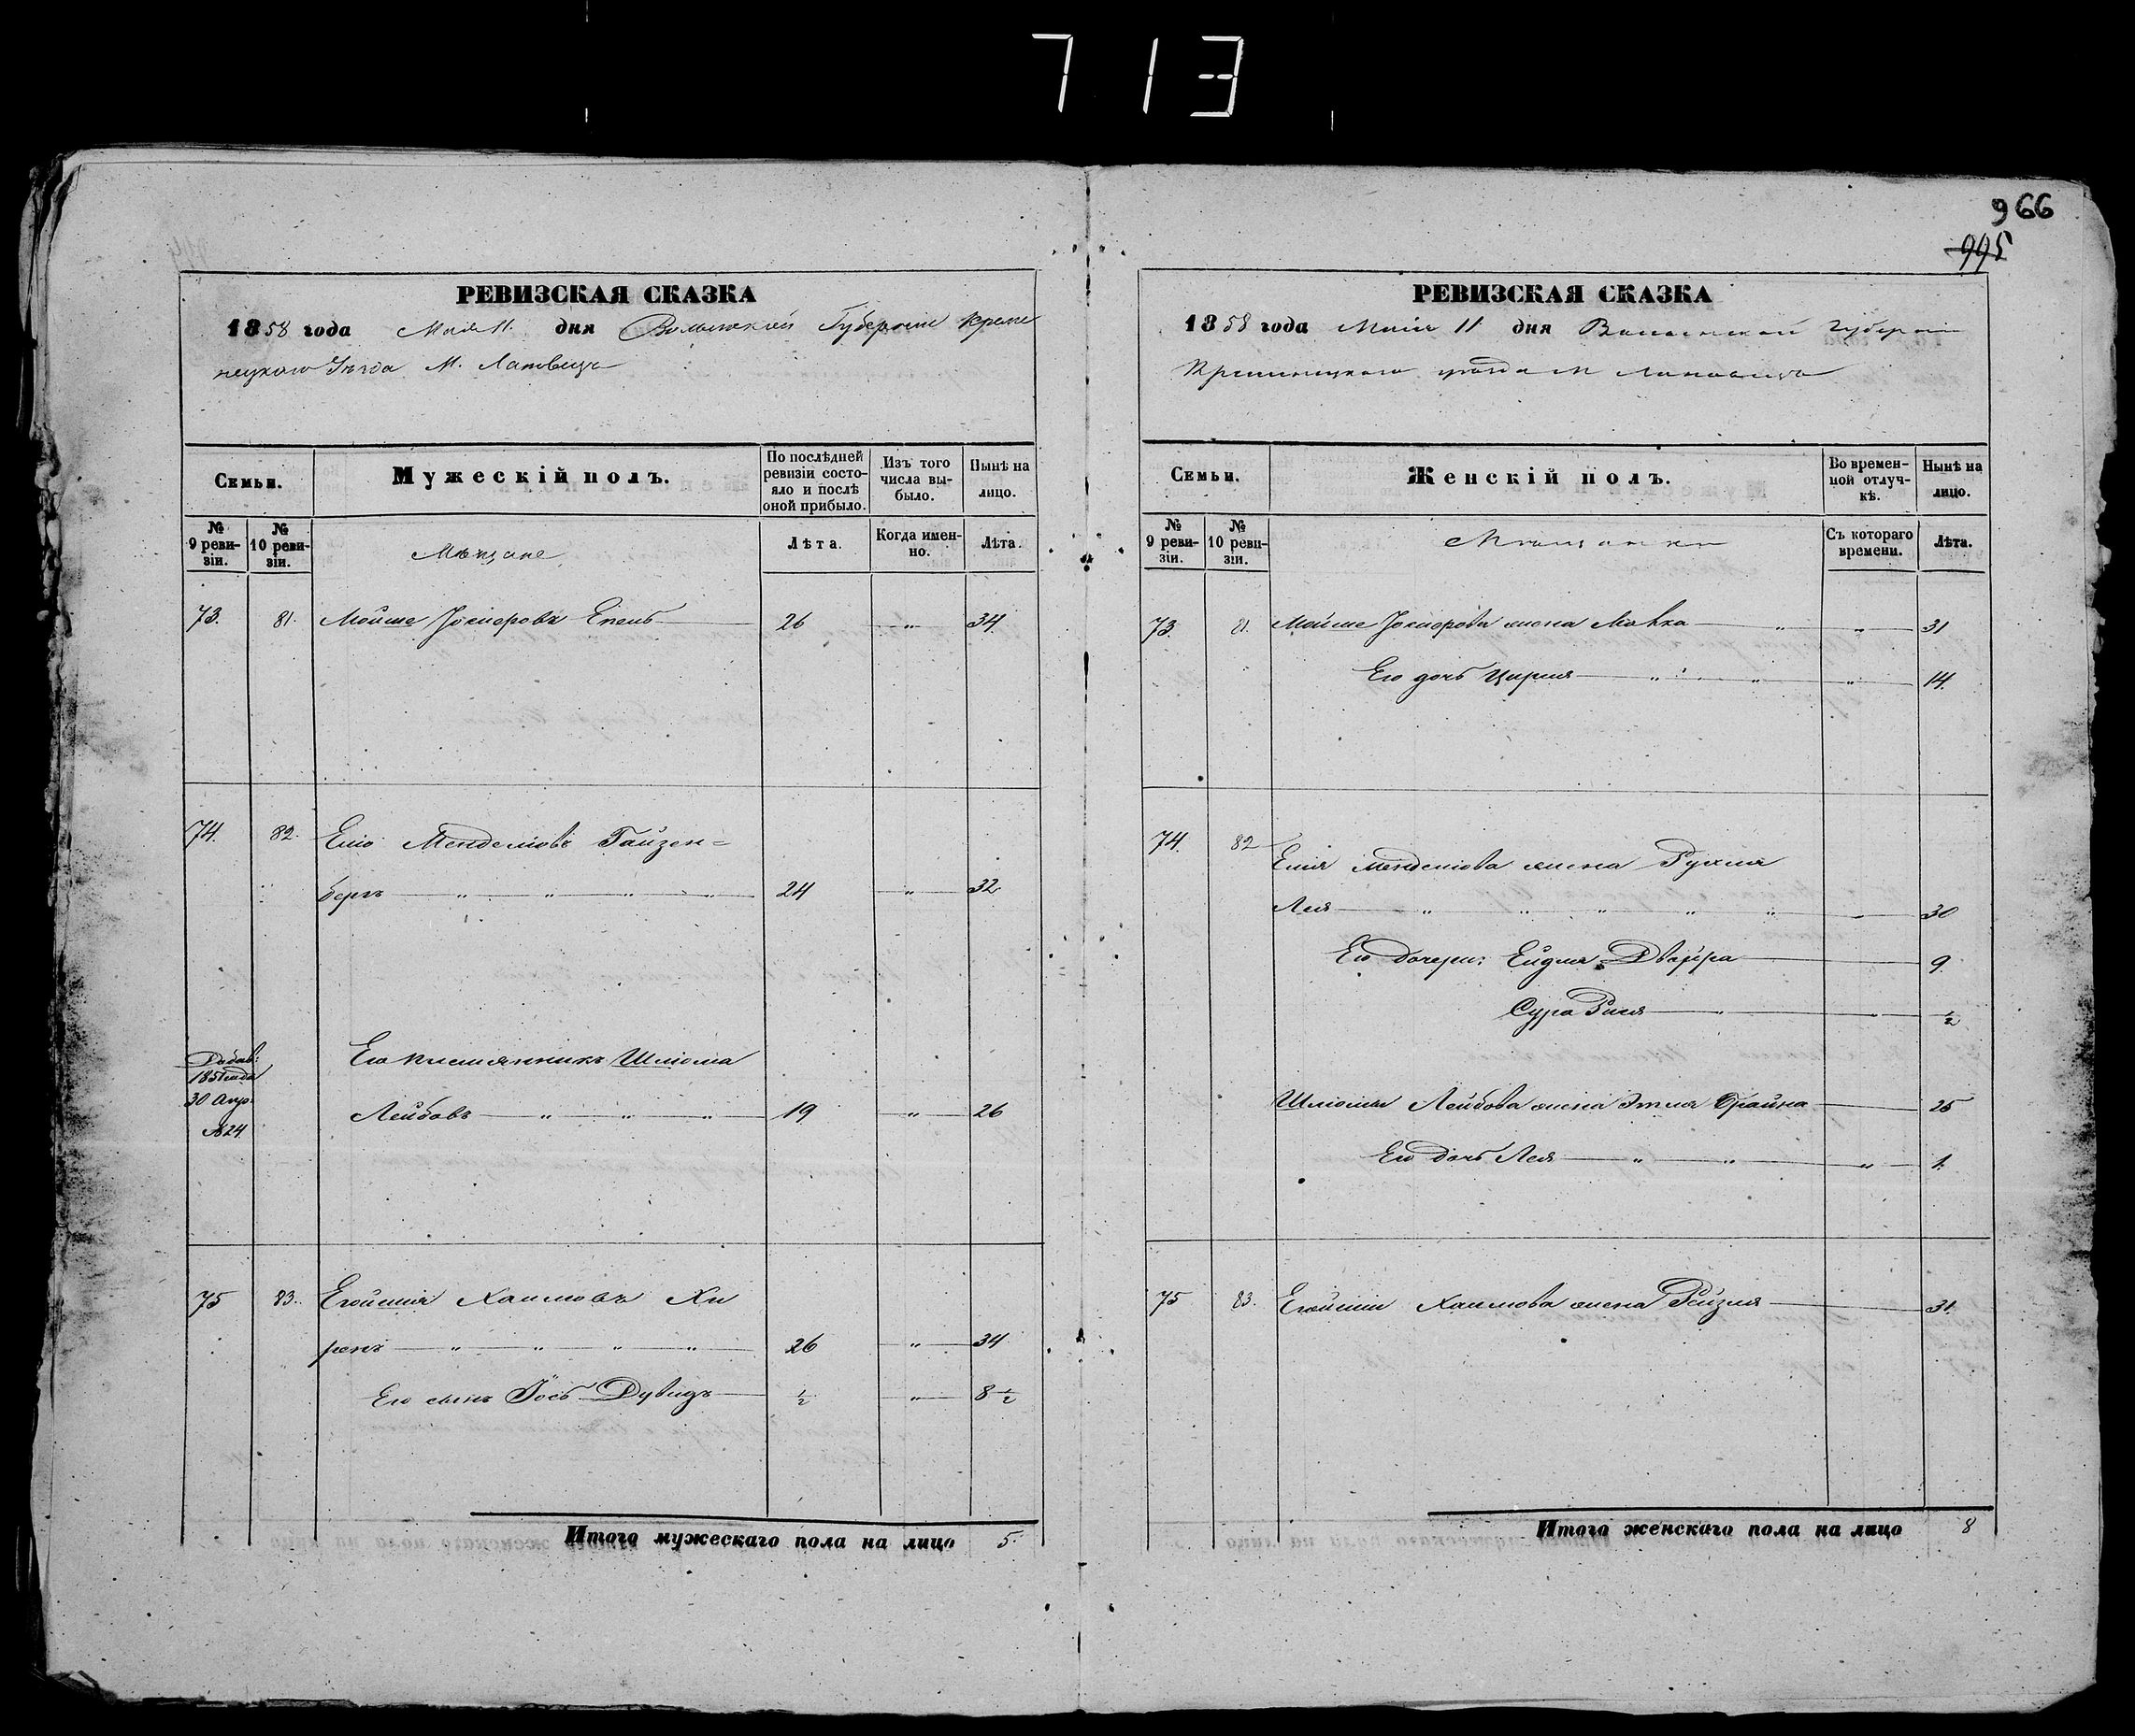 713
966
995
РЕВИЗСКАЯ СКАЗКА
1858 года Мая 11 дня Волынской Губернии Креме
нецкаго Уезда М. Лановецъ
Семьи.
Мужескій полъ.
По послѣдней ревизіи состояло и послѣ оной прибыло.
Изъ того числа выбыло.
Нынѣ на лицо.
№ 9 ревизіи.
№ 10 ревизіи.
Мѣщане
Лѣта.
Когда именно.
Лѣта.
73. 81. Мойше 26 " 34
74. 82. Мендемовъ Гайзен=
бергъ " " " " 24 " 32
Добав:
1851 года
30 Апр.
№ 24
Его племянникъ Шлиома
Лейбовъ " " " 19 " 26
75 83. Хаимовъ Хи
ренъ " " " " 26 " 34
Его сынъ Іось Дувидъ ½ " 8½
Итого мужескаго пола на лицо 5.
РЕВИЗСКАЯ СКАЗКА
1858 года Мая 11 дня Волынской Губернии
Кременецкаго уезда М Лановецъ
Семьи.
Женскій полъ.
Во временной отлучкѣ.
Нынѣ на лицо.
№ 9 ревизіи.
№ 10 ревизіи.
Мѣщанки
Съ котораго времени.
Лѣта.
73. 81. Мойше жена " " 31
Его дочь Цирля " " " 14.
74. 82 жена Рухля
Лея " " " " " 30
Его дочери: Ейдля Двойра 9.
Сура Зися " " ½
Шлиомы Лейбова жена Этля Брайна 25
Его дочь Лея " " " 1.
75 83. Хаимова жена Рейзля 31.
Итого женскаго пола на лицо 8